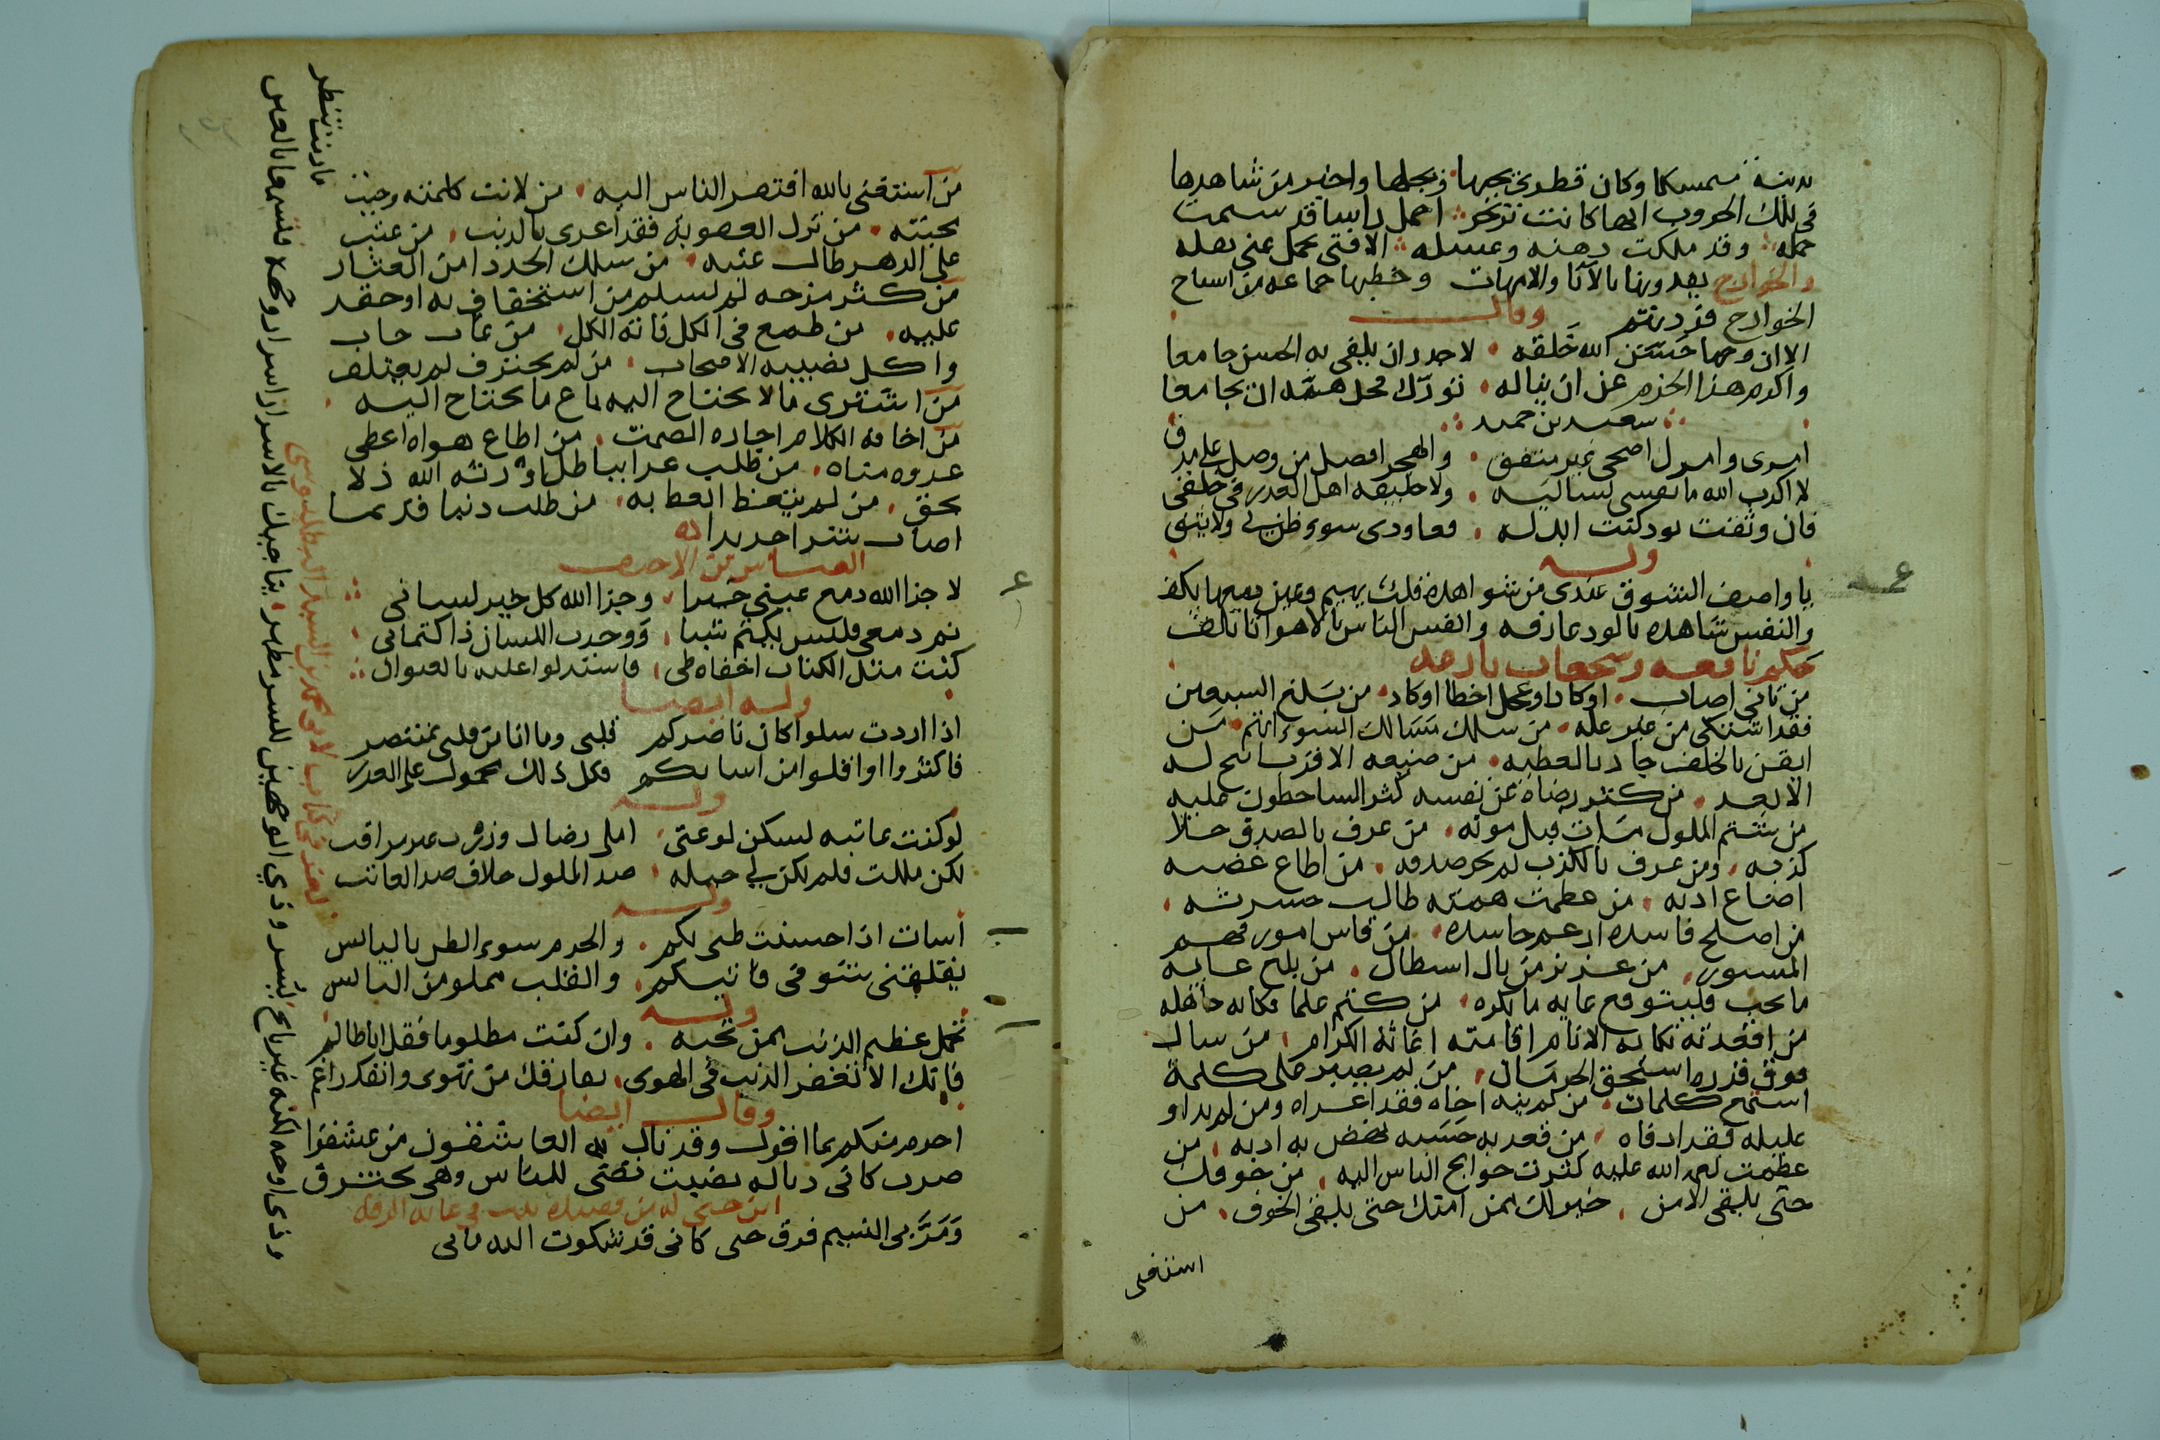 بدينه متمسكا وكان قطري يحبها ويجلها واخبر من شاهدها
في تلك الحروب انها كانت ترتجز احمل راسا قد سئمت
حمله وقد مللت دهنه وغسله الا فتى يحمل عني ثقله
والخوارج يفدونها بالآبا والامهات وخطبها جماعه من اسراح
الخوارج فردتهم وقال
الا ان وجها حَسَّن الله خَلقه لاجدر ان يلفى به الحسن جامعا
واكرم هذا الجرم عن ان يناله تورك فحل همّه ان يجامعا
سعيد بن حميد
امري وامرك اضحى غير متفق والهجر افضل من وصل على مذق
لا اكذب الله ما نفسي لساليه ولا خليقه اهل الغدر في خلقي
فان وثقت بود كنت ابذله فعاودي سوء ظن بي ولا تثقي
وله
يا واصف الشوق عندي من شواهده قلب يهيم وعين دمعها يكف
والنفس شاهده بالود عارفه وانفس الناس بالاهوا تاتلف
حكم نافعه وسحعات بارعه
من تانى اصاب او كاد او عجل اخطا او كاد من بَلغ السبعين
فقد اشتكى من غير عله من سلك مسَالك السوء اتهم مَن
ايقن بالخلف جاد بالعطيه من ضيعه الاقرب اتيح له
الابعد من كثر رضاه عن نفسه كثر الساخطون عليه
من يشتم الملول مَات قبل موته من عرف بالصدق جاز
كذبه ومن عرف بالكذب لم يجز صدقه من اطاع غضبه
اضاع ادبه من عظمت همته طالت حسرته
من اصلح فاسده ارغم حاسده من قاس امور فهم
المستور من عز بز من نال استطال من بلغ غايه
ما يحب فليتوقع غايه ما يكره من كتم علما فكانه جاهله
من اقعدته نكايه الانام اقامته اغاثه الكرام من سال
فوق قدره استحق الحرمَان من لم يصبر على كلمة
استمع كلمات من لم ينه اخاه فقد اغراه ومن لم يداو
عليله فقد ارداه من قعد به حَسَبه نهض به ادبه من
عظمت نعم الله عليه كثرت حوايج الناس اليه من خوفك
حتى تلقى الامن خير لك ممن امنك حتى تلقى الخوف من
استغنى
من آستغنى بالله افتقر الناس اليه من لانت كلمته وجبت
محبته من ترك العقوبة فقد اغرى بالذنب من عتب
على الدهر طال عتبه من سلك الجدد امن العثار
من كثر مزحه لم يسلم من استخفاف به او حقد
عليه من طمع في الكل فاته الكل من غاب خاب
واكل نصيبه الاصحاب من لم يحترف لم يعتلف
من اشترى ما لا يحتاج اليه باع ما يحتاج اليه
من اخافه الكلام اجاره الصمت من اطاع هواه اعطى
عدوه مناه من طلب عزا بباطل اورثه الله ذلا
بحق من لم يتعظ اتعظ به من طلب دنيا فربما
اصاب
العباس بن الاحنف
لا جزا الله دمع عيني خيرا وجزا الله كل خير لساني
نم دمعي فليس يكتم شيا ووجدت اللسان ذا كتمان
كنت مثل الكتاب اخفاه طي فاستدلوا عليه بالعنوان
وله ايضا
اذا اردت سلوا كان ناصركم قلبي وما انا من قلبي بمنتصر
فاكثروا او اقلوا من اساتكم فكل ذلك محمول على القدر
وله
لو كنت عاتبه لسكن لوعتي املي رضاك وزرت غير مراقب
لكن مللت فلم تكن لي حيله صد الملول خلاف صد العاتب
وله
اسات اذ احسنت ظني بكم والحزم سوء الظن بالناس
يقلقني شوقي فاتيكم والقلب مملو من الياس
وله
تحمل عظيم الذنب ممن تحبه وان كنت مظلوما فقل انا ظالم
فانك الا تغفر الذنب في الهوى يفارقك من تهوى وانفك راغم
وقال ايضا
احرم منكم بما اقول وقد نال به العاشقون من عشقوا
صرت كاني ذباله نصبت تضي للناس وهي تحترق
ومَرَّ بي النسيم فرق حتى كاني قد شكوت اليه ما بي